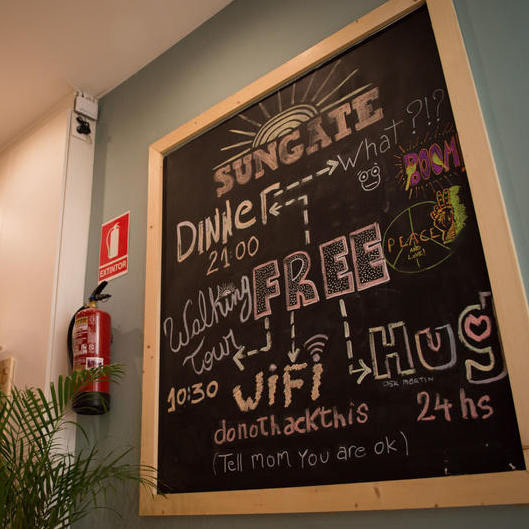 SUNGATE
What?!?
BOOM!
DINNER
21:00
PEACE
AND
LOVE!
EXTINTOR
FREE
Walking
Tour
10:30
WiFi
donothackthis
(Tell mom You are ok)
Hug
ASK MARTIN
24 hs